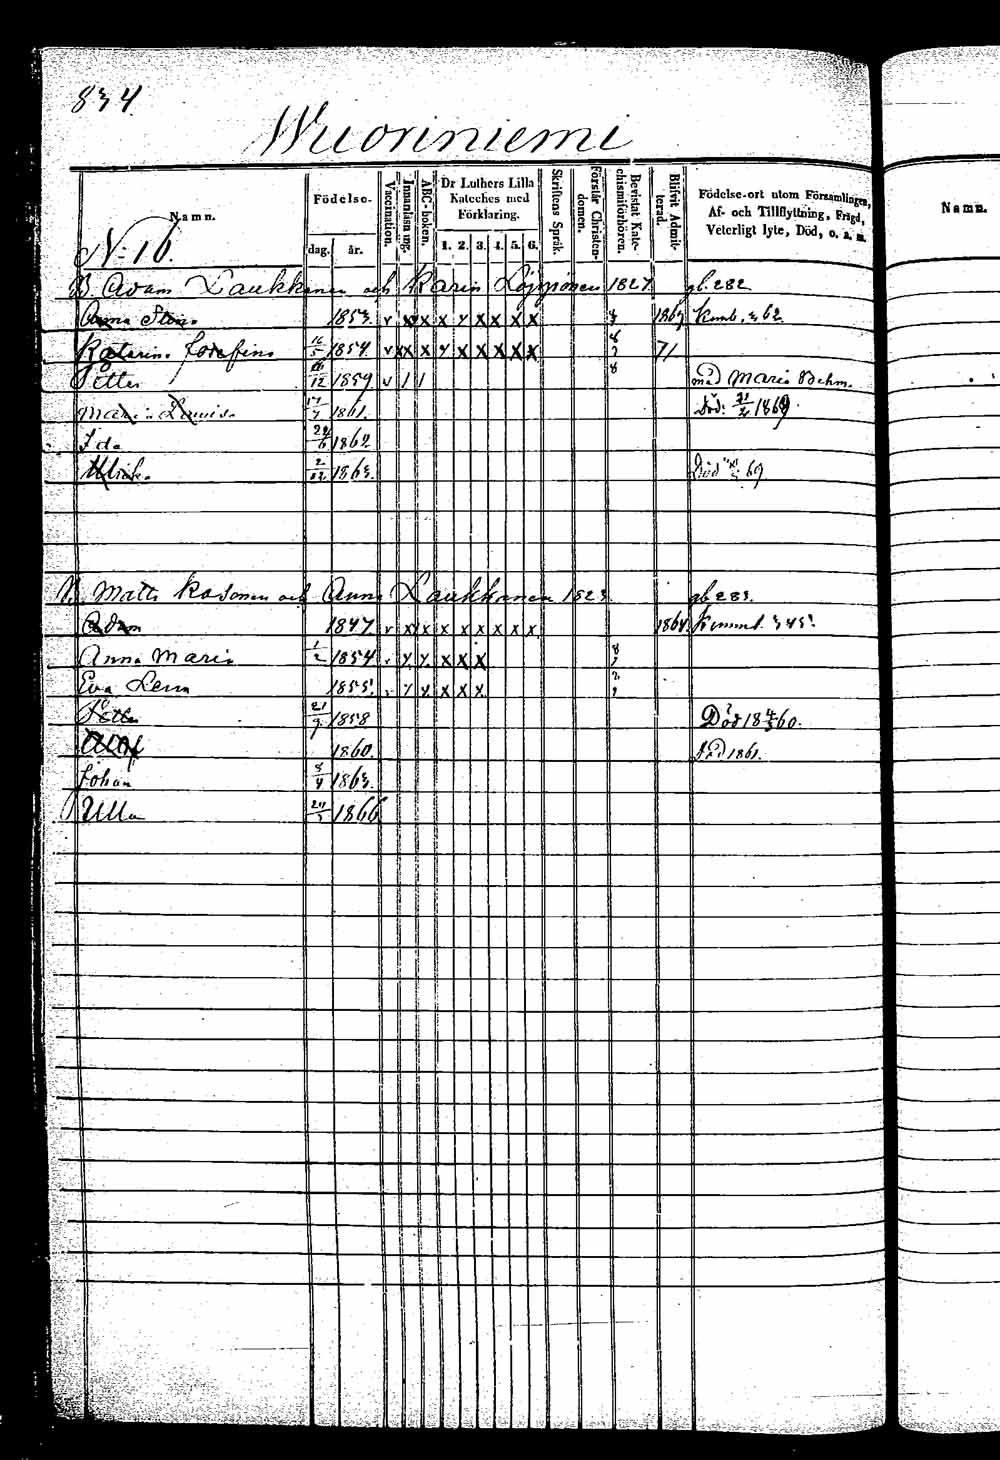 834.
Wuoriniemi
Namn. Födelse- Vaccination. Innanläsning. ABC-boken. Dr Luthers Lilla Kateches med Förklaring. Skriftens Språk. Förstår Christendomen. Bevistat Katechismiförhören. Blifvit Admitterad. Födelse-ort utom Församlingen, Af- och Tillflyttning, Frägd, Veterligt lyte, Död, o. s. m. Namn.
dag. år. 1. 2. 3. 4. 5. 6.
N:16.
B. Adam Laukkanen och Karin Löppönen 1827. gb. 282
Anna Stina 1853. v x x x y x x x x 1869 Komb. 62.
Katarina Josefina 16/5 1854. v x x x y x x x x x 8 71
Petter /12 1859 v / / 8 Maria Behm.
Maria Lovisa /7 1861. Död: 1869
Ida 22/6 1862.
Ulrika 2/12 1863. Död 69
B. Matts Kasonen och Anna Laukkanen 1823. gb 283.
Adam 1847. v x x x x x x x x 1864. Komb. 345
Anna Maria 1/2 1854 v y y x x x 8
Eva Lena 1855. v y x x x x
Petter 21/9 1858 Död 18 60.
1860. Död 1861.
Johan 8/4 1863.
Ulla 1866